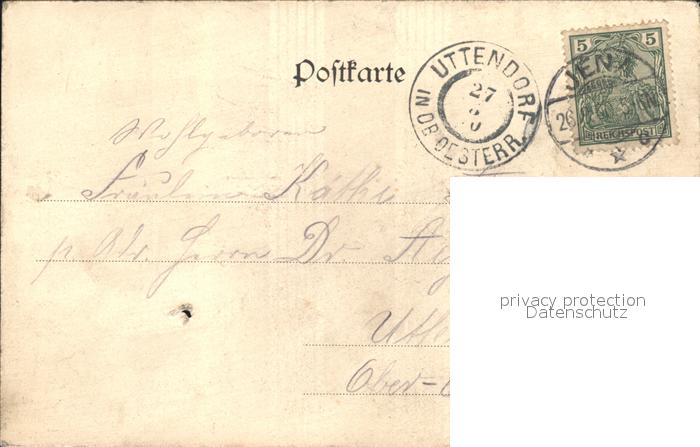 Postkarte
UTTENDORF
IN OB. OESTERR.
27
JENA
26
5 5
REICHSPOST
Wohlgeboren
Fräulein Käthe
p. Adr. Herrn Dr.
privacy protection
Datenschutz
Ober-